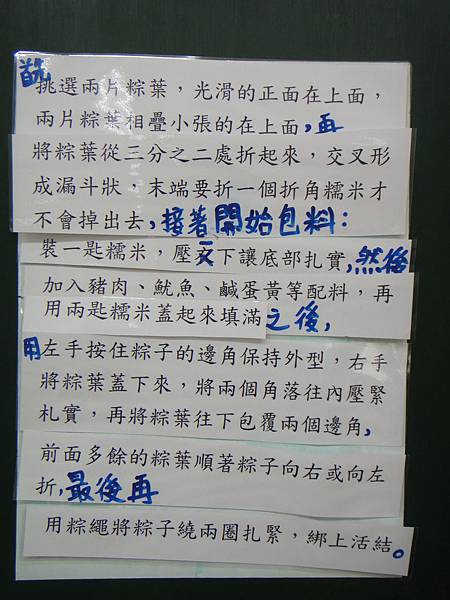 首先挑選兩片粽葉，光滑的正面在上面，
兩片粽葉相疊小張的在上面，再
將粽葉從三分之二處折起來，交叉形
成漏斗狀，末端要折一個折角糯米才
不會掉出去，接著開始包料：
裝一匙糯米，壓一下讓底部扎實，然後
加入豬肉、魷魚、鹹蛋黃等配料，再
用兩匙糯米蓋起來填滿之後，
用左手按住粽子的邊角保持外型，右手
將粽葉蓋下來，將兩個角落往內壓緊
札實，再將粽葉往下包覆兩個邊角，
前面多餘的粽葉順著粽子向右或向左
折，最後再
用粽繩將粽子繞兩圈扎緊，綁上活結。